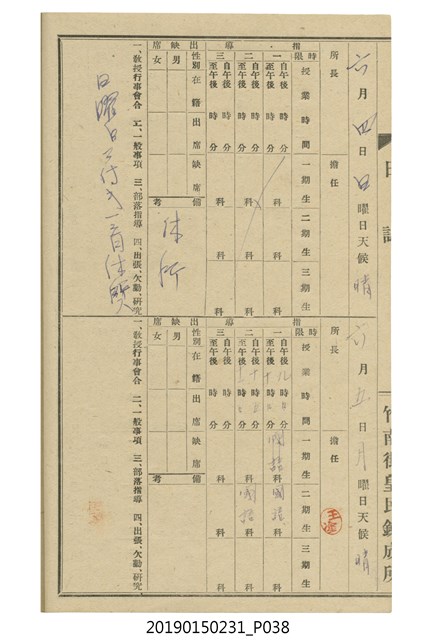 竹南街皇民鍊成所
日誌
六月四日日曜日天候晴
所長
擔任
指導
時限 授業時間 一期生 二期生 三期生
一 自午後 時 分 至午後 時 分 科 科 科
二 自午後 時 分 至午後 時 分 科 科 科
三 自午後 時 分 至午後 時 分 科 科 科
出缺席
性別 在籍 出席 缺席
男
女
備考
休所
一、教授行事會合 二、一般事項 三、部落指導 四、出張、欠勤、研究
日曜日ニ付
六月五日月曜日天候晴
所長
擔任
指導
時限 授業時間 一期生 二期生 三期生
一 自午後 時 分 至午後 時 分 國語科 國語科 科
二 自午後 時 分 至午後 時 分 科 國語科 科
三 自午後 時 分 至午後 時 分 科 科 科
出缺席
性別 在籍 出席 缺席
男
女
備考
一、教授行事會合 二、一般事項 三、部落指導 四、出張、欠勤、研究
20190150231_P038